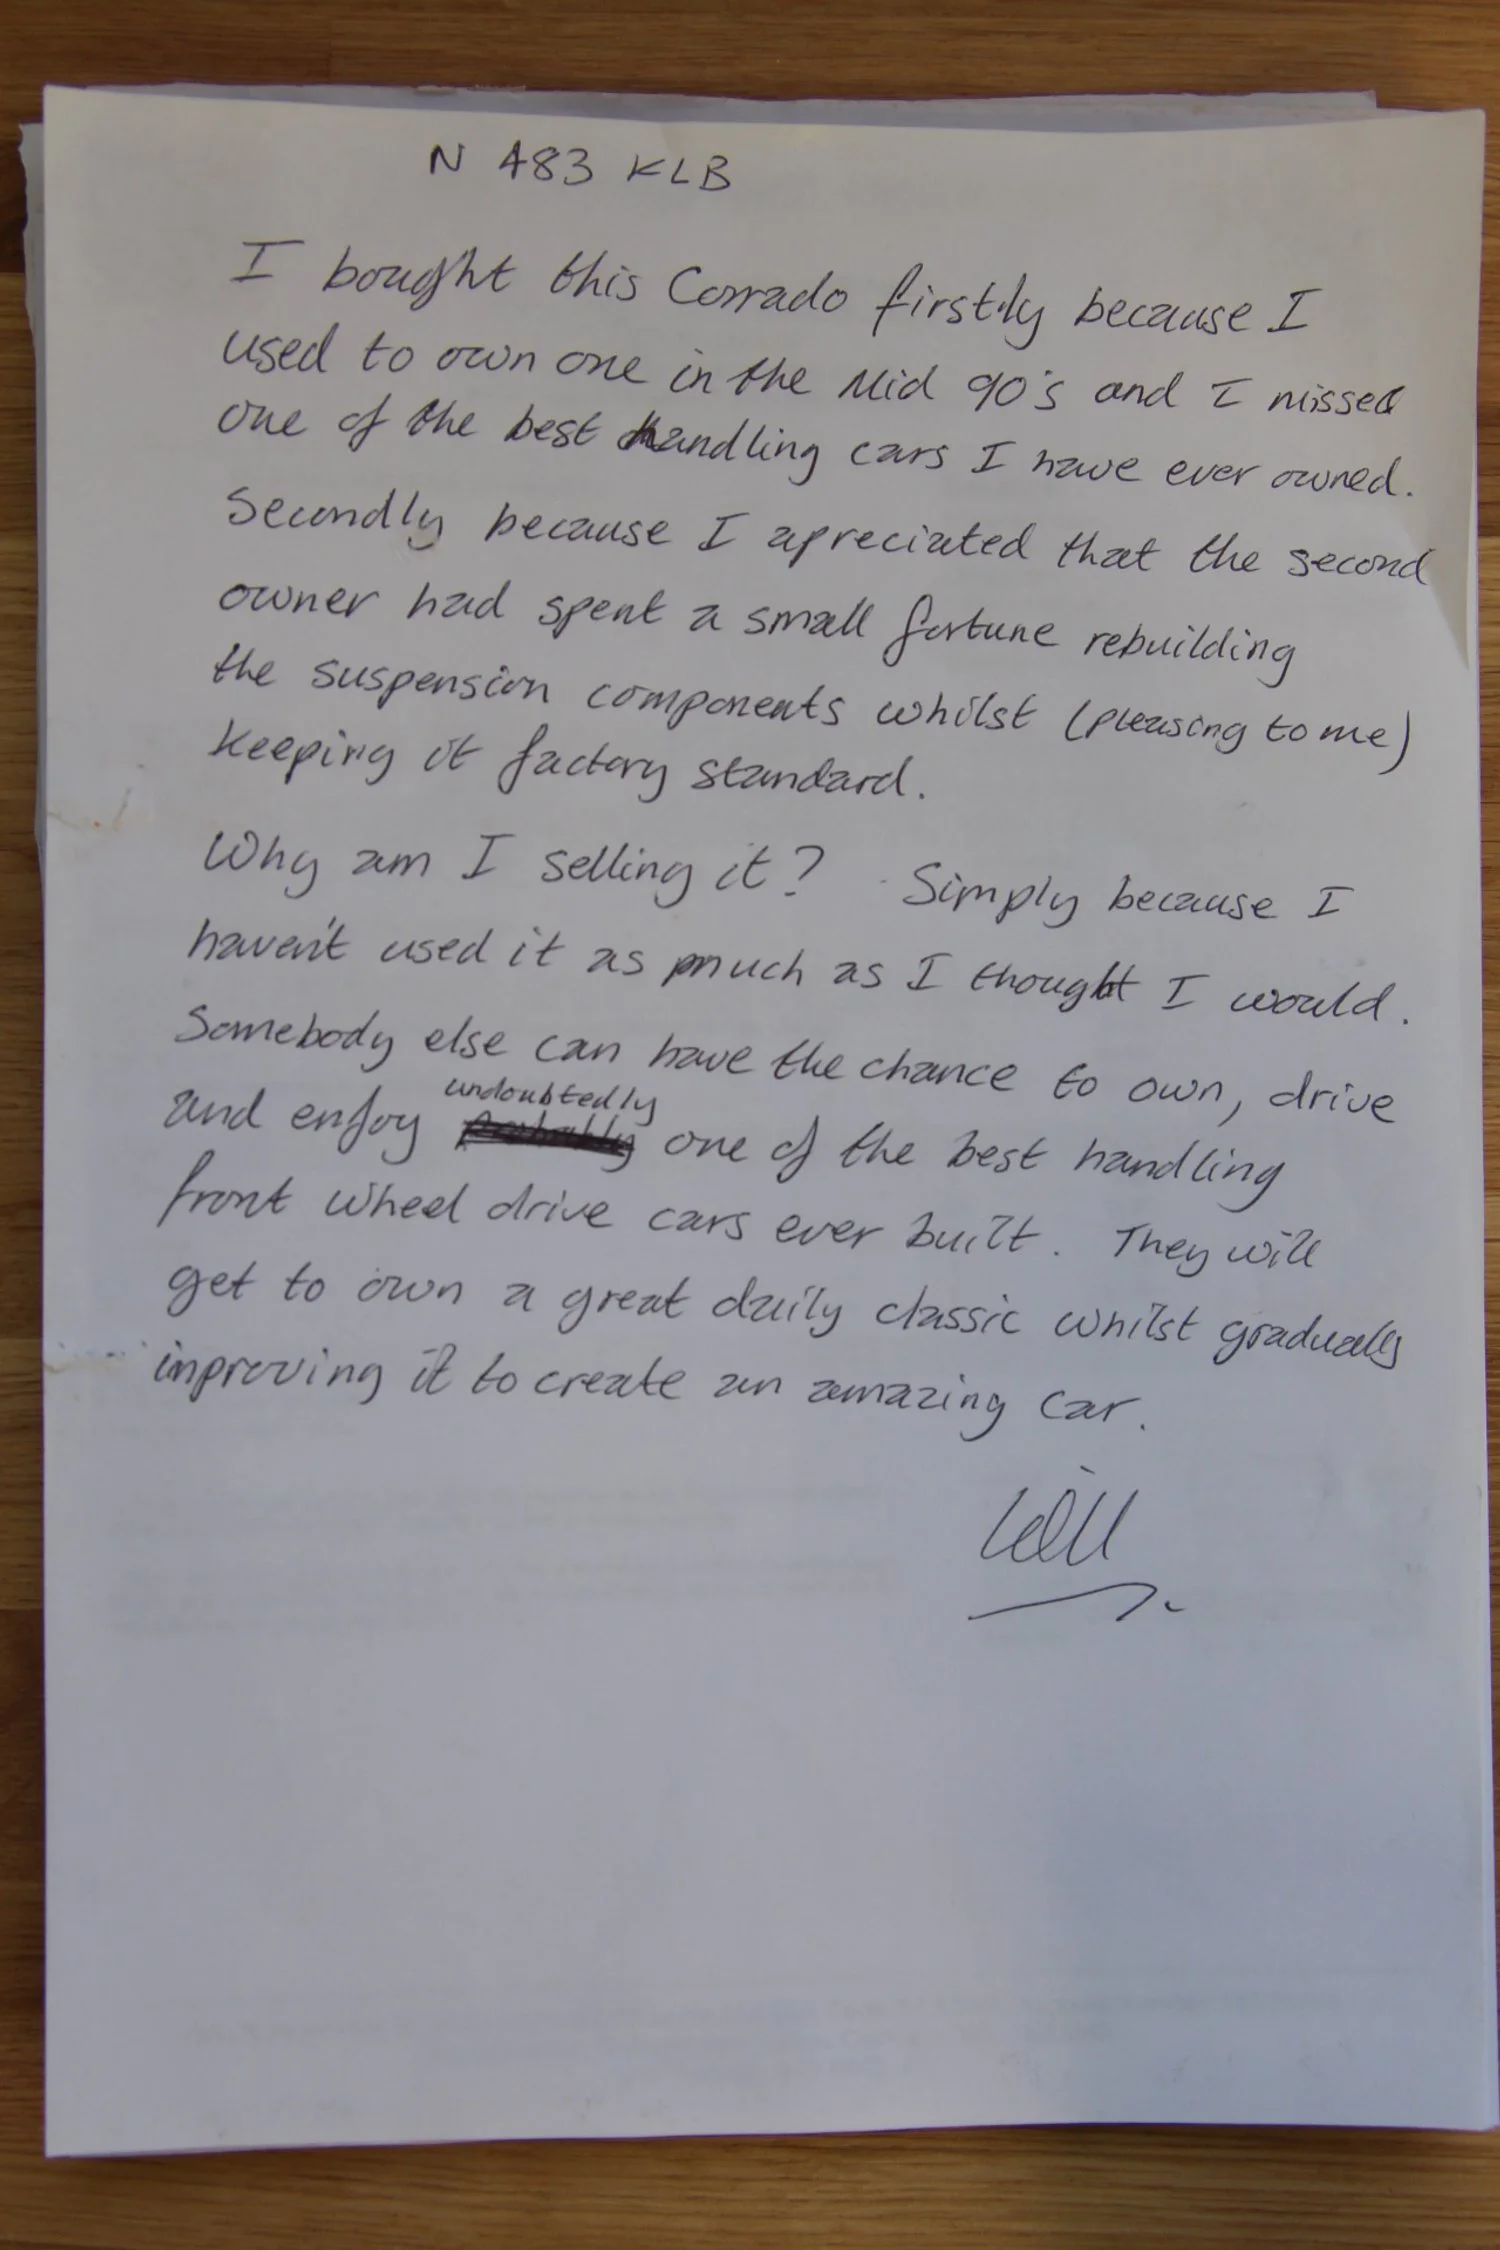 N 483 KLB
I bought this Corrado firstly because I
used to own one in the Mid 90's and I missed
one of the best handling cars I have ever owned.
Secondly because I apreciated that the second
owner had spent a small fortune rebuilding
the suspension components whilst (pleasing to me)
keeping it factory standard.
Why am I selling it? Simply because I
haven't used it as much as I thought I would.
Somebody else can have the chance to own, drive
undoubtedly
and enjoy one of the best handling
front wheel drive cars ever built. They will
get to own a great daily classic whilst gradually
inproving it to create an amazing car.
Will